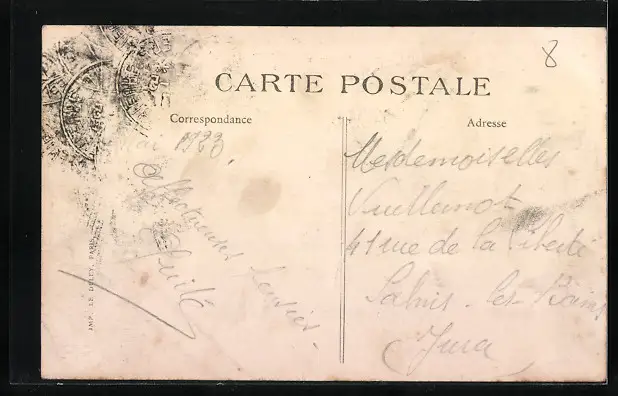 8
CARTE POSTALE
Correspondance
Adresse
Mai 1923
Affectueuses pensées
Mesdemoiselles
Vuillemot
41 rue de la liberté
Salins-les-Bains
Jura
IMP. LE DELEY, PARIS